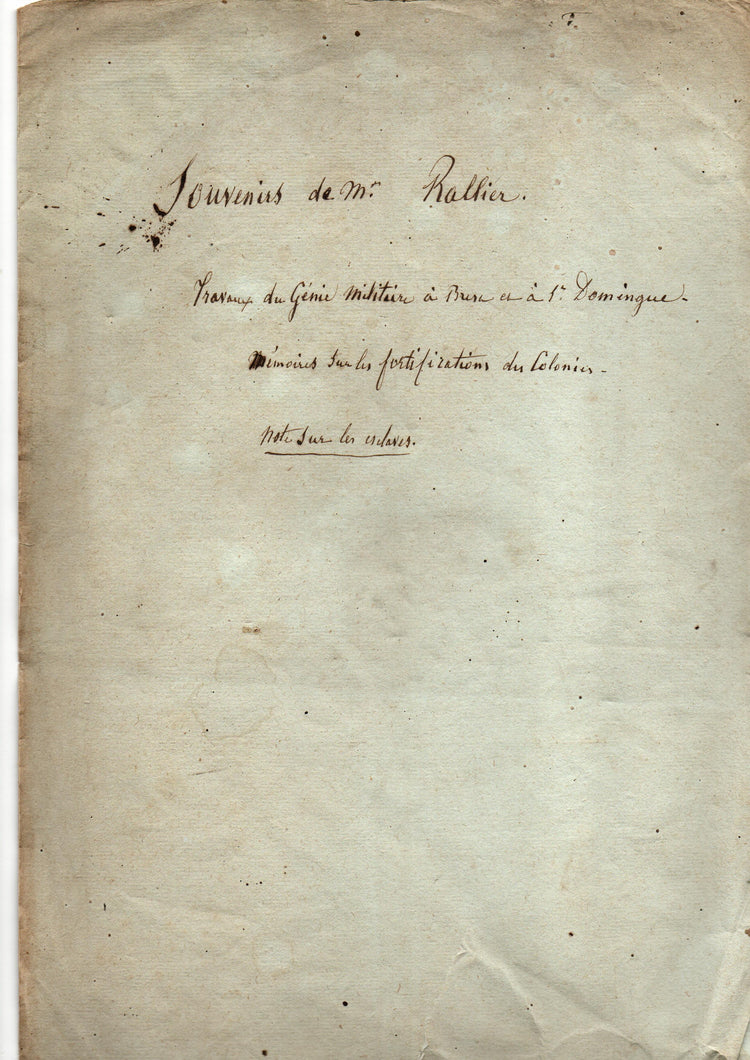 Souvenirs de Mr Rallier.
Travaux du Génie Militaire à Brest et à St Domingue -
Mémoires sur les fortifications des Colonies -
Note sur les esclaves.